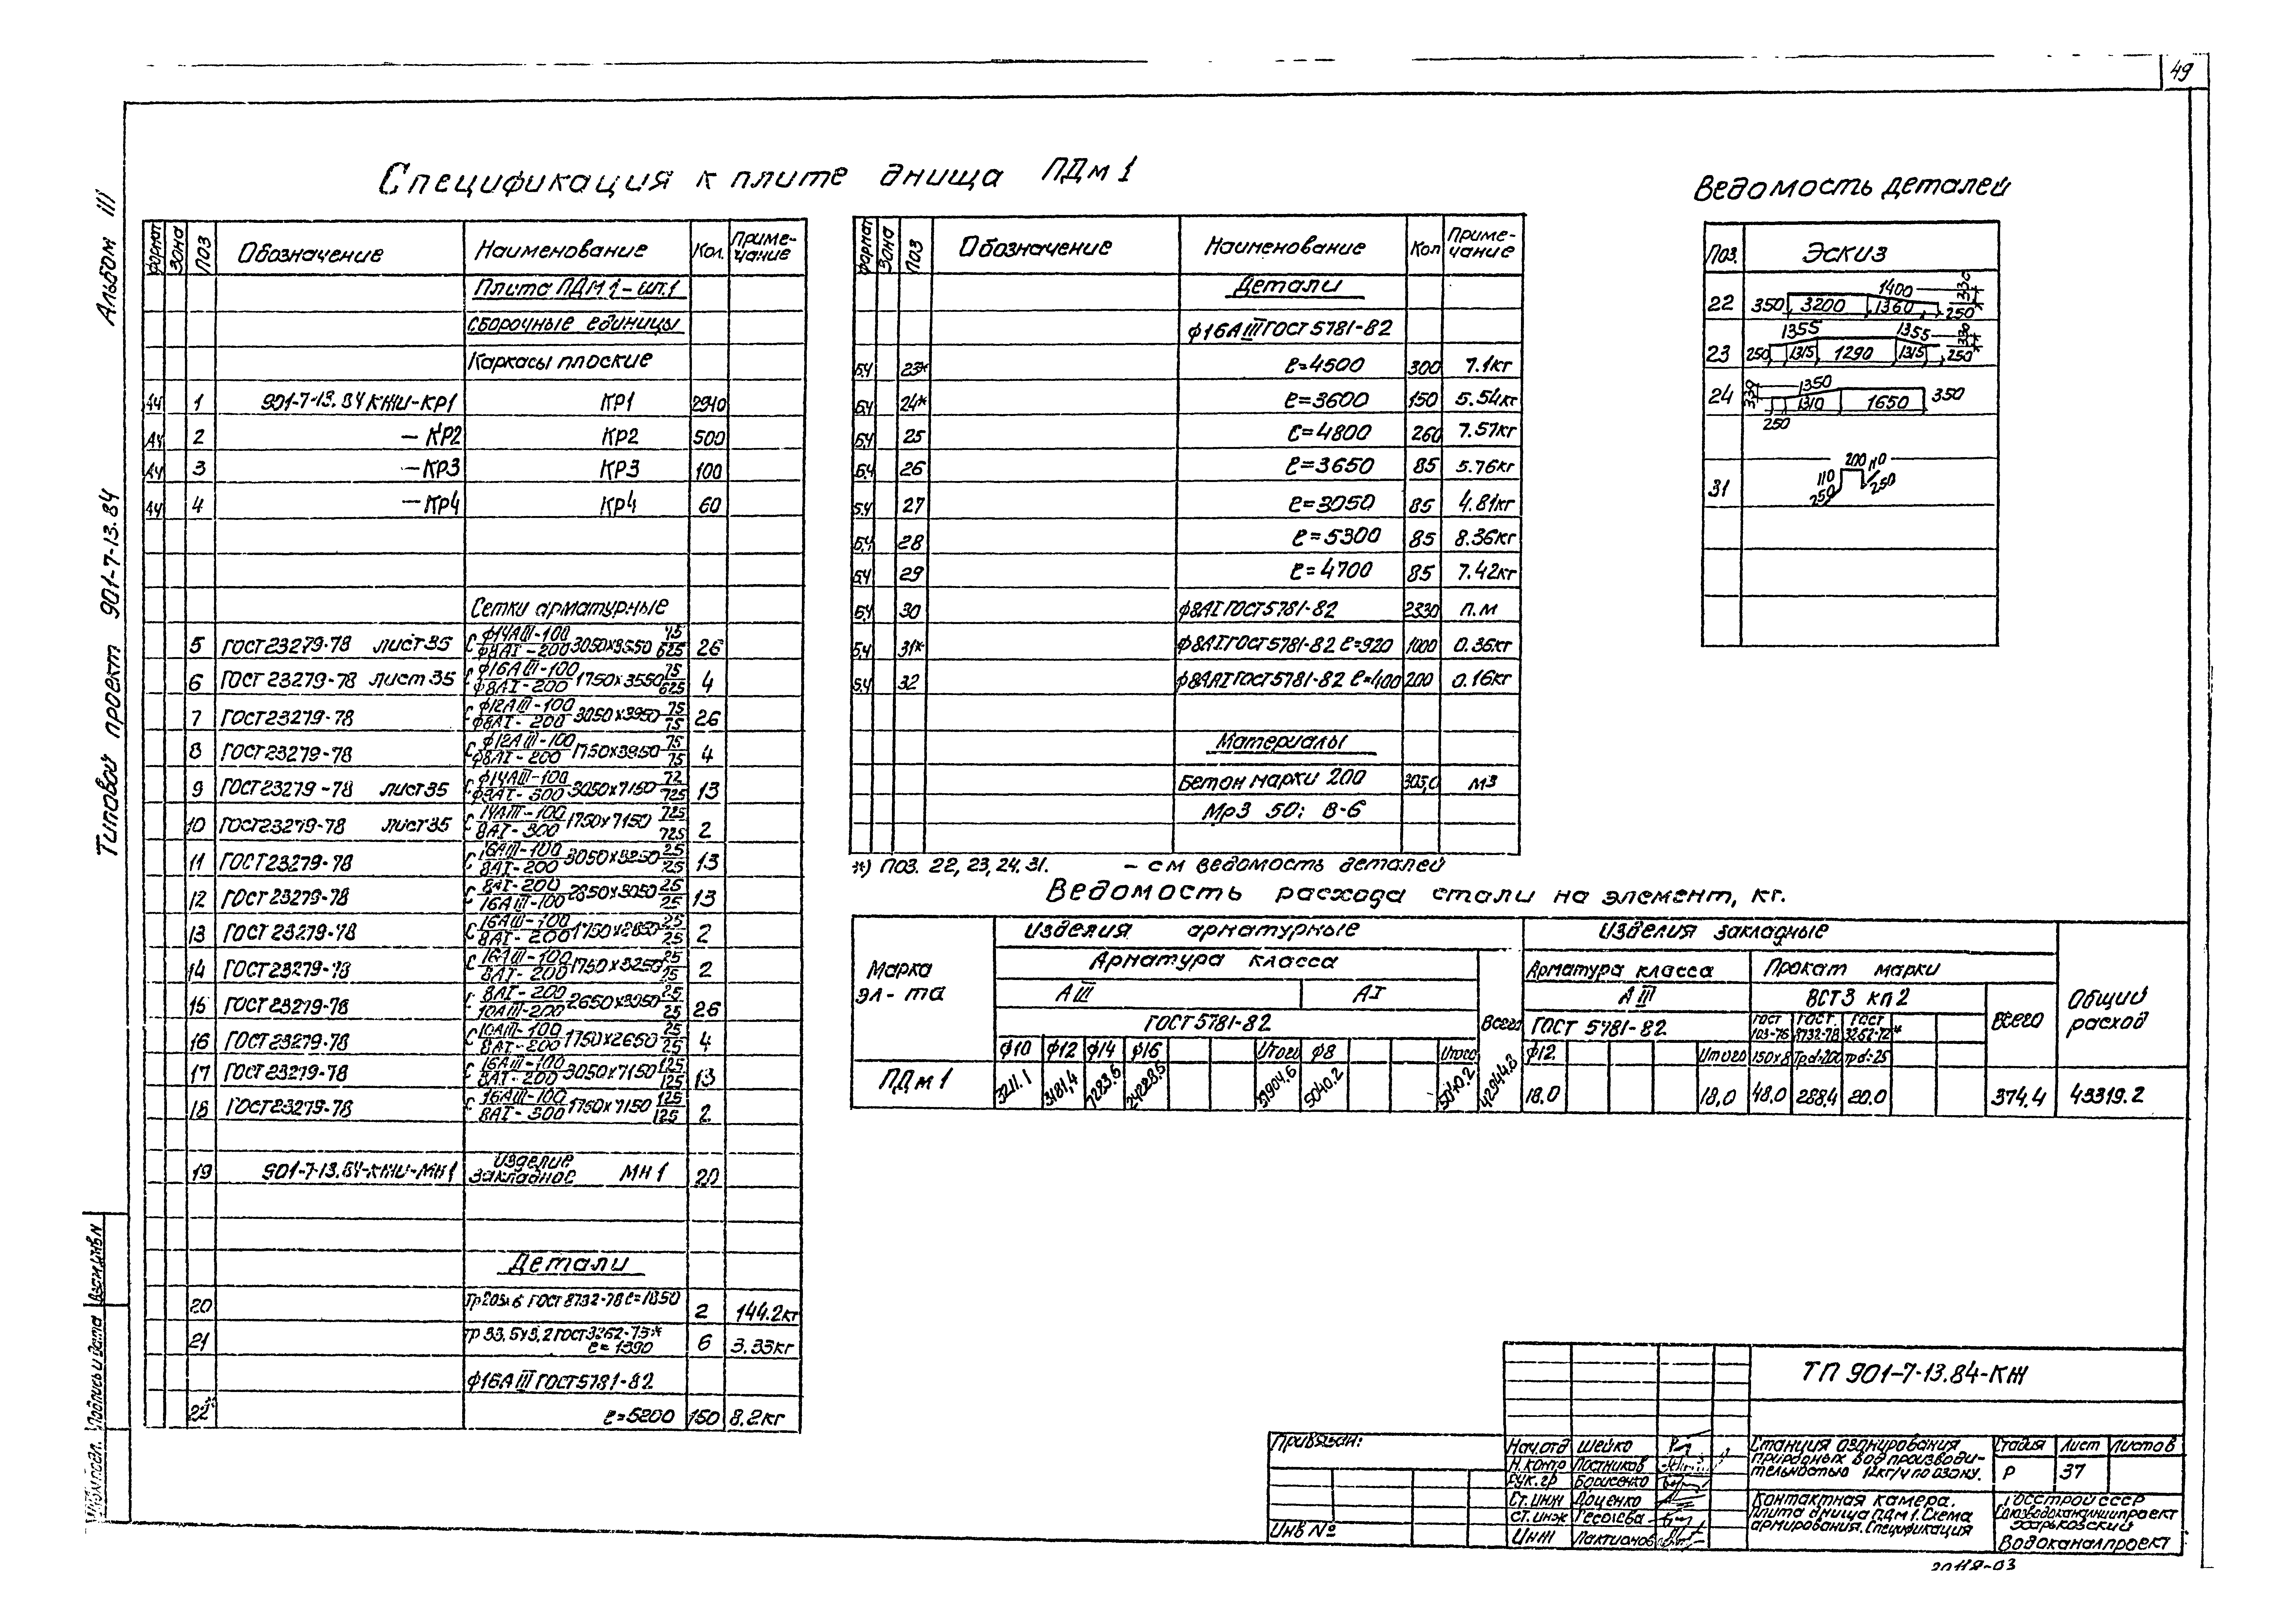 49
Альбом III
Типовой проект 901-7-13.84
Спецификация к плите днища ПДм 1
Формат Зона Поз Обозначение Наименование Кол. Примечание
Плита ПДм 1 - шт. 1
Сборочные единицы
Каркасы плоские
А4 1 901-7-13.84 КЖИ-КР1 КР1 2940
А4 2 - КР2 КР2 500
А4 3 - КР3 КР3 100
А4 4 - КР4 КР4 60
Сетки арматурные
5 ГОСТ 23279-78 лист 35 С ф14АIII-100/ф8АI-200 3050х3550 75/625 26
6 ГОСТ 23279-78 лист 35 С ф16АIII-100/ф8АI-200 1750х3550 75/625 4
7 ГОСТ 23279-78 С ф12АIII-100/ф8АI-200 3050х3950 75/75 26
8 ГОСТ 23279-78 С ф12АIII-100/ф8АI-200 1750х3950 75/75 4
9 ГОСТ 23279-78 лист 35 С ф14АIII-100/ф8АI-300 3050х7150 /725 13
10 ГОСТ 23279-78 лист 35 С 14АIII-100/8АI-300 1750х7150 725/725 2
11 ГОСТ 23279-78 С 16АIII-100/8АI-200 3050х3250 25/25 13
12 ГОСТ 23279-78 С 8АI-200/16АIII-100 2850х3050 25/25 13
13 ГОСТ 23279-78 С 16АIII-100/8АI-200 1750х2850 25/25 2
14 ГОСТ 23279-78 С 16АIII-100/8АI-200 1750х3250 25/25 2
15 ГОСТ 23279-78 С 8АI-200/10АIII-200 2650х3050 25/25 26
16 ГОСТ 23279-78 С 10АIII-100/8АI-200 1750х2650 25/25 4
17 ГОСТ 23279-78 С 16АIII-100/8АI-300 3050х7150 125/125 13
18 ГОСТ 23279-78 С 16АIII-100/8АI-300 1750х7150 125/125 2
19 901-7-13.84-КЖИ-МН1 Изделие закладное МН 1 20
Детали
20 ГОСТ 8732-78 ℓ=1850 2 144.2кг
21 Тр 33,5х3,2 ГОСТ 3262-75* ℓ=1390 6 3.33кг
ф16АIII ГОСТ 5781-82
22* ℓ=5200 150 8.2кг
Формат Зона Поз Обозначение Наименование Кол Примечание
Детали
ф16АIII ГОСТ 5781-82
Б4 23* ℓ=4500 300 7.1кг
Б4 24* ℓ=3600 150 5.54кг
Б4 25 ℓ=4800 260 7.57кг
Б4 26 ℓ=3650 85 5.76кг
Б4 27 ℓ=3050 85 4.81кг
Б4 28 ℓ=5300 85 8.36кг
Б4 29 ℓ=4700 85 7.42кг
Б4 30 ф8АI ГОСТ 5781-82 2330 п.м
Б4 31* ф8АI ГОСТ 5781-82 ℓ=920 1000 0.36кг
Б4 32 ф8АI ГОСТ 5781-82 ℓ=400 200 0.16кг
Материалы
Бетон марки 200 305,0 м3
Мрз 50; В-6
*) Поз. 22, 23, 24. 31. - см ведомость деталей
Ведомость деталей
Поз. Эскиз
22 350 3200 1400 1360 250 330
23 250 1355 1315 1290 1355 1315 250 330
24 330 250 1350 1310 1650 350
31 250 110 200 110 250
Ведомость расхода стали на элемент, кг.
Марка эл-та
Изделия арматурные
Изделия закладные
Общий расход
Арматура класса
Всего
Арматура класса
Прокат марки
Всего
АIII АI АIII ВСТ3 кп2
ГОСТ 5781-82 ГОСТ 5781-82 ГОСТ 103-76 ГОСТ 8732-78 ГОСТ 3262-72*
ф10 ф12 ф14 ф16 Итого ф8 Итого ф12 Итого 150х8 Тр d=200 Тр d=25
ПДм 1 3211.1 3181,4 7283.6 24228.5 37904.6 5040.2 5040.2 42944.8 18.0 18,0 48,0 288,4 20.0 374.4 43319.2
Взам инв N
Подпись и дата
Привязан:
Инв №
Нач.отд Шейко
Н.контр Постников
Рук.гр Борисенко
Ст.инж Доценко
Ст.инж
Инж Лактионов
ТП 901-7-13.84-КЖ
Станция озонирования природных вод производительностью 12кг/ч по озону.
Стадия Лист Листов
Р 37
Контактная камера.
Плита днища ПДм 1. Схема армирования. Спецификация
Госстрой СССР
Союзводоканалниипроект
Харьковский
Водоканалпроект
20118-03